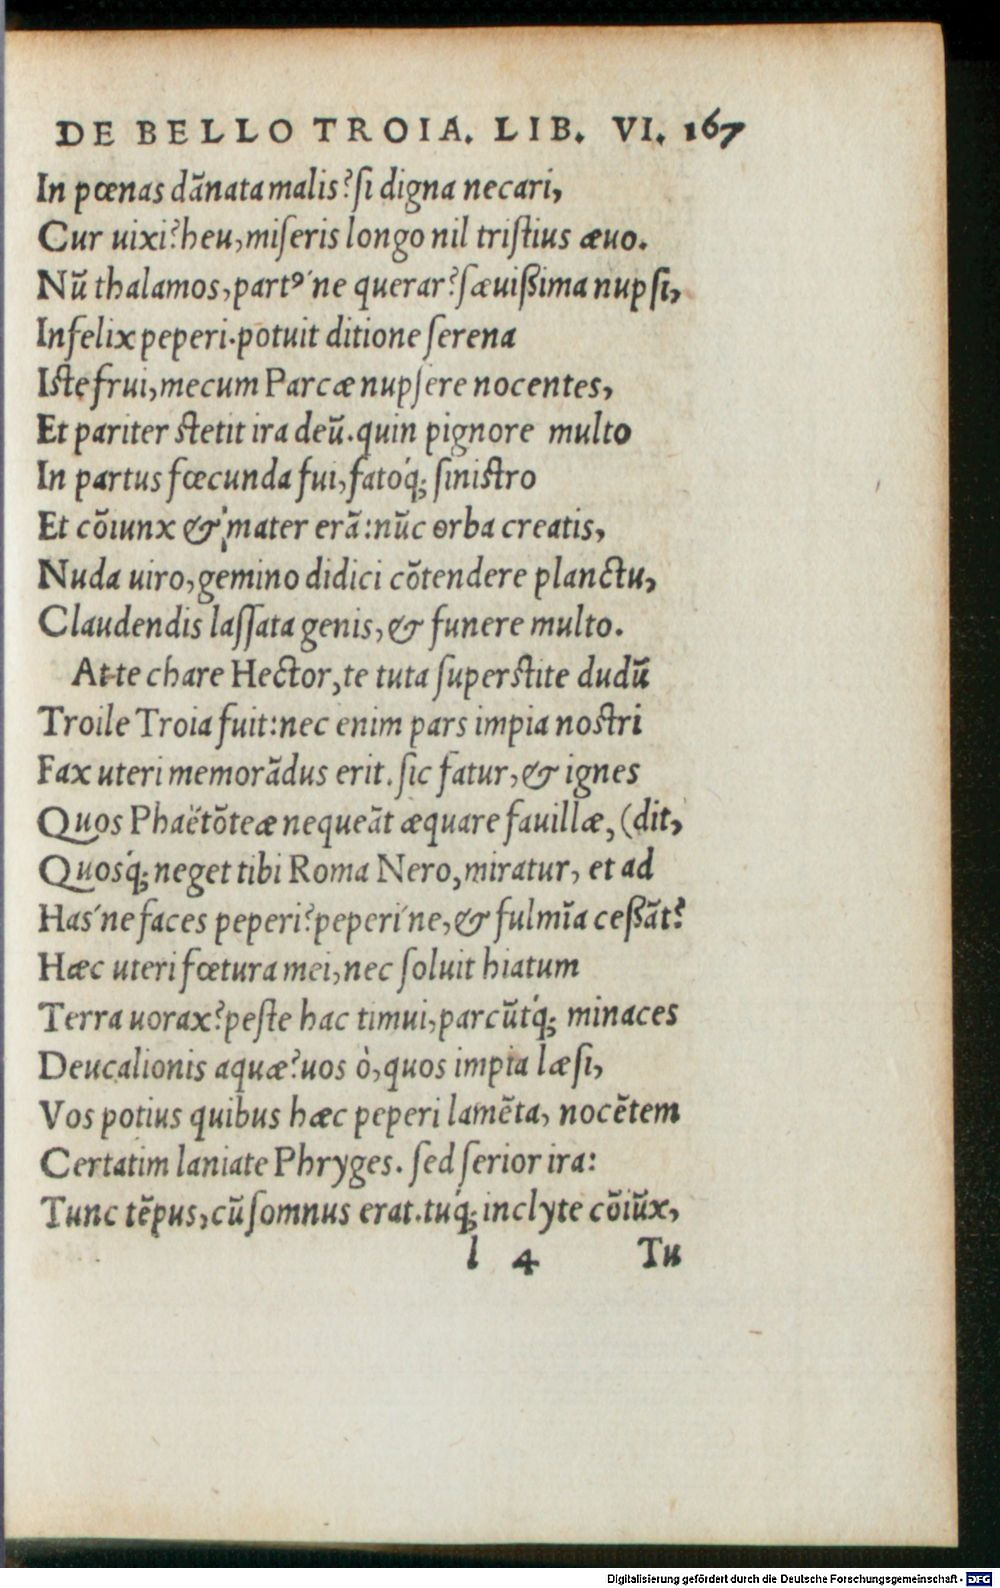 DE BELLO TROIA. LIB. VI. 167
In pœnas dãnata malis? ſi digna necari,
Cur uixi? heu, miſeris longo nil triſtius æuo.
Nũ thalamos, partꝰ ́ne querar? ſæuißima nupſi,
Infelix peperi. potuit ditione ſerena
Iſte frui, mecum Parcæ nupſere nocentes,
Et pariter ſtetit ira deũ. quin pignore multo
In partus fœcunda fui, fatoq́; ſiniſtro
Et cõiunx & mater erã: nũc orba creatis,
Nuda uiro, gemino didici cõtendere planctu,
Claudendis laſſata genis, & funere multo.
At te chare Hector, te tuta ſuperſtite dudũ
Troile Troia fuit: nec enim pars impia noſtri
Fax uteri memorãdus erit. ſic fatur, & ignes
Quos Phaëtõteæ nequeãt æquare fauillæ, (dit,
Quosq́; neget tibi Roma Nero, miratur, et ad
Has ́ne faces peperi? peperi ́ne, & fulmĩa ceßãt?
Hæc uteri fœtura mei, nec ſoluit hiatum
Terra uorax? peſte hac timui, parcũtq́; minaces
Deucalionis aquæ? uos ò, quos impia læſi,
Vos potius quibus hæc peperi lamẽta, nocẽtem
Certatim laniate Phryges. ſed ſerior ira:
Tunc tẽpus, cũ ſomnus erat. tuq́; inclyte cõiũx,
l 4 Tu
Digitalisierung gefördert durch die Deutsche Forschungsgemeinschaft - DFG